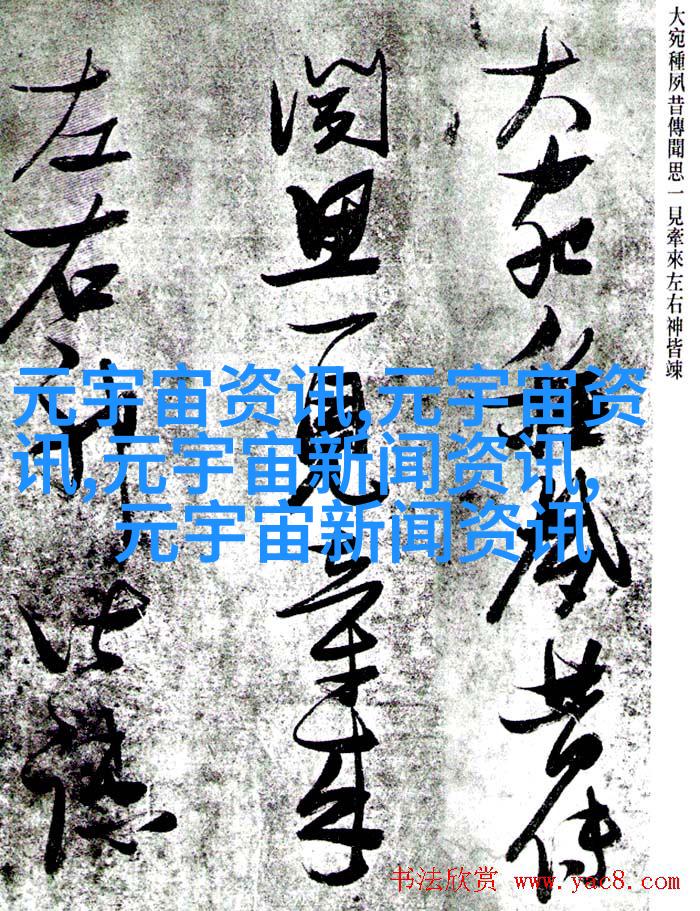 大宛種夙昔傳聞思一見牽來左右神皆竦
大宛種夙昔傳
聞思一見牽來
左右神皆竦
元宇宙资讯,元宇宙资
讯,元宇宙新闻资讯,
元宇宙新闻资讯
书法欣赏 www.yac8.com